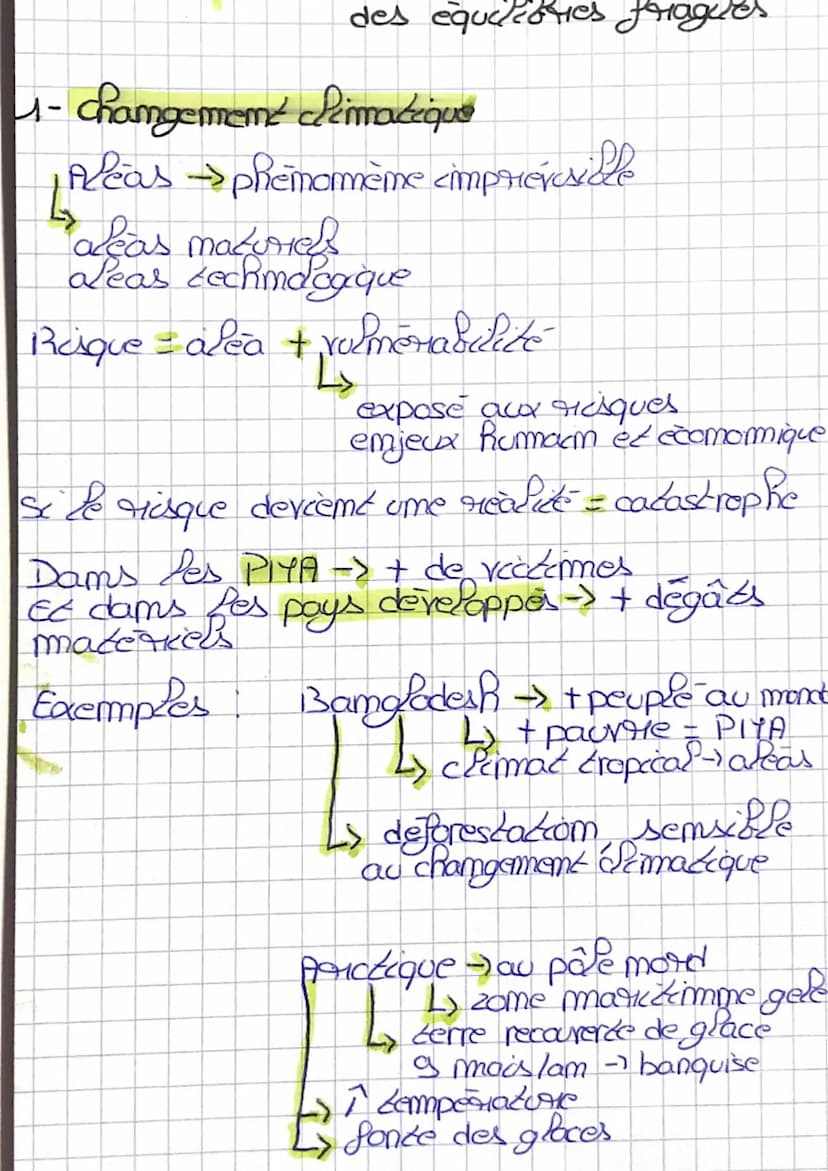 des équilibres fragiles
1- changement climatique
Aléas → phénomène imprévisible
↳ aléas naturels
aléas technologique
Risque = aléa + vulnérabilité
↳ exposé aux risques
enjeux humain et économique
Si le risque devient une réalité = catastrophe
Dans les PMA → + de victimes
Et dans les pays développés → + dégâts
matériels
Exemples : Bangladesh → + peuplé au mond
↳ + pauvre = PMA
↳ climat tropical → aléas
↳ déforestation sensible
au changement climatique
Arctique → au pôle nord
↳ zone maritimme gelé
↳ terre recouverte de glace
9 mois/an → banquise
↳ ↑ température
↳ fonte des glaces